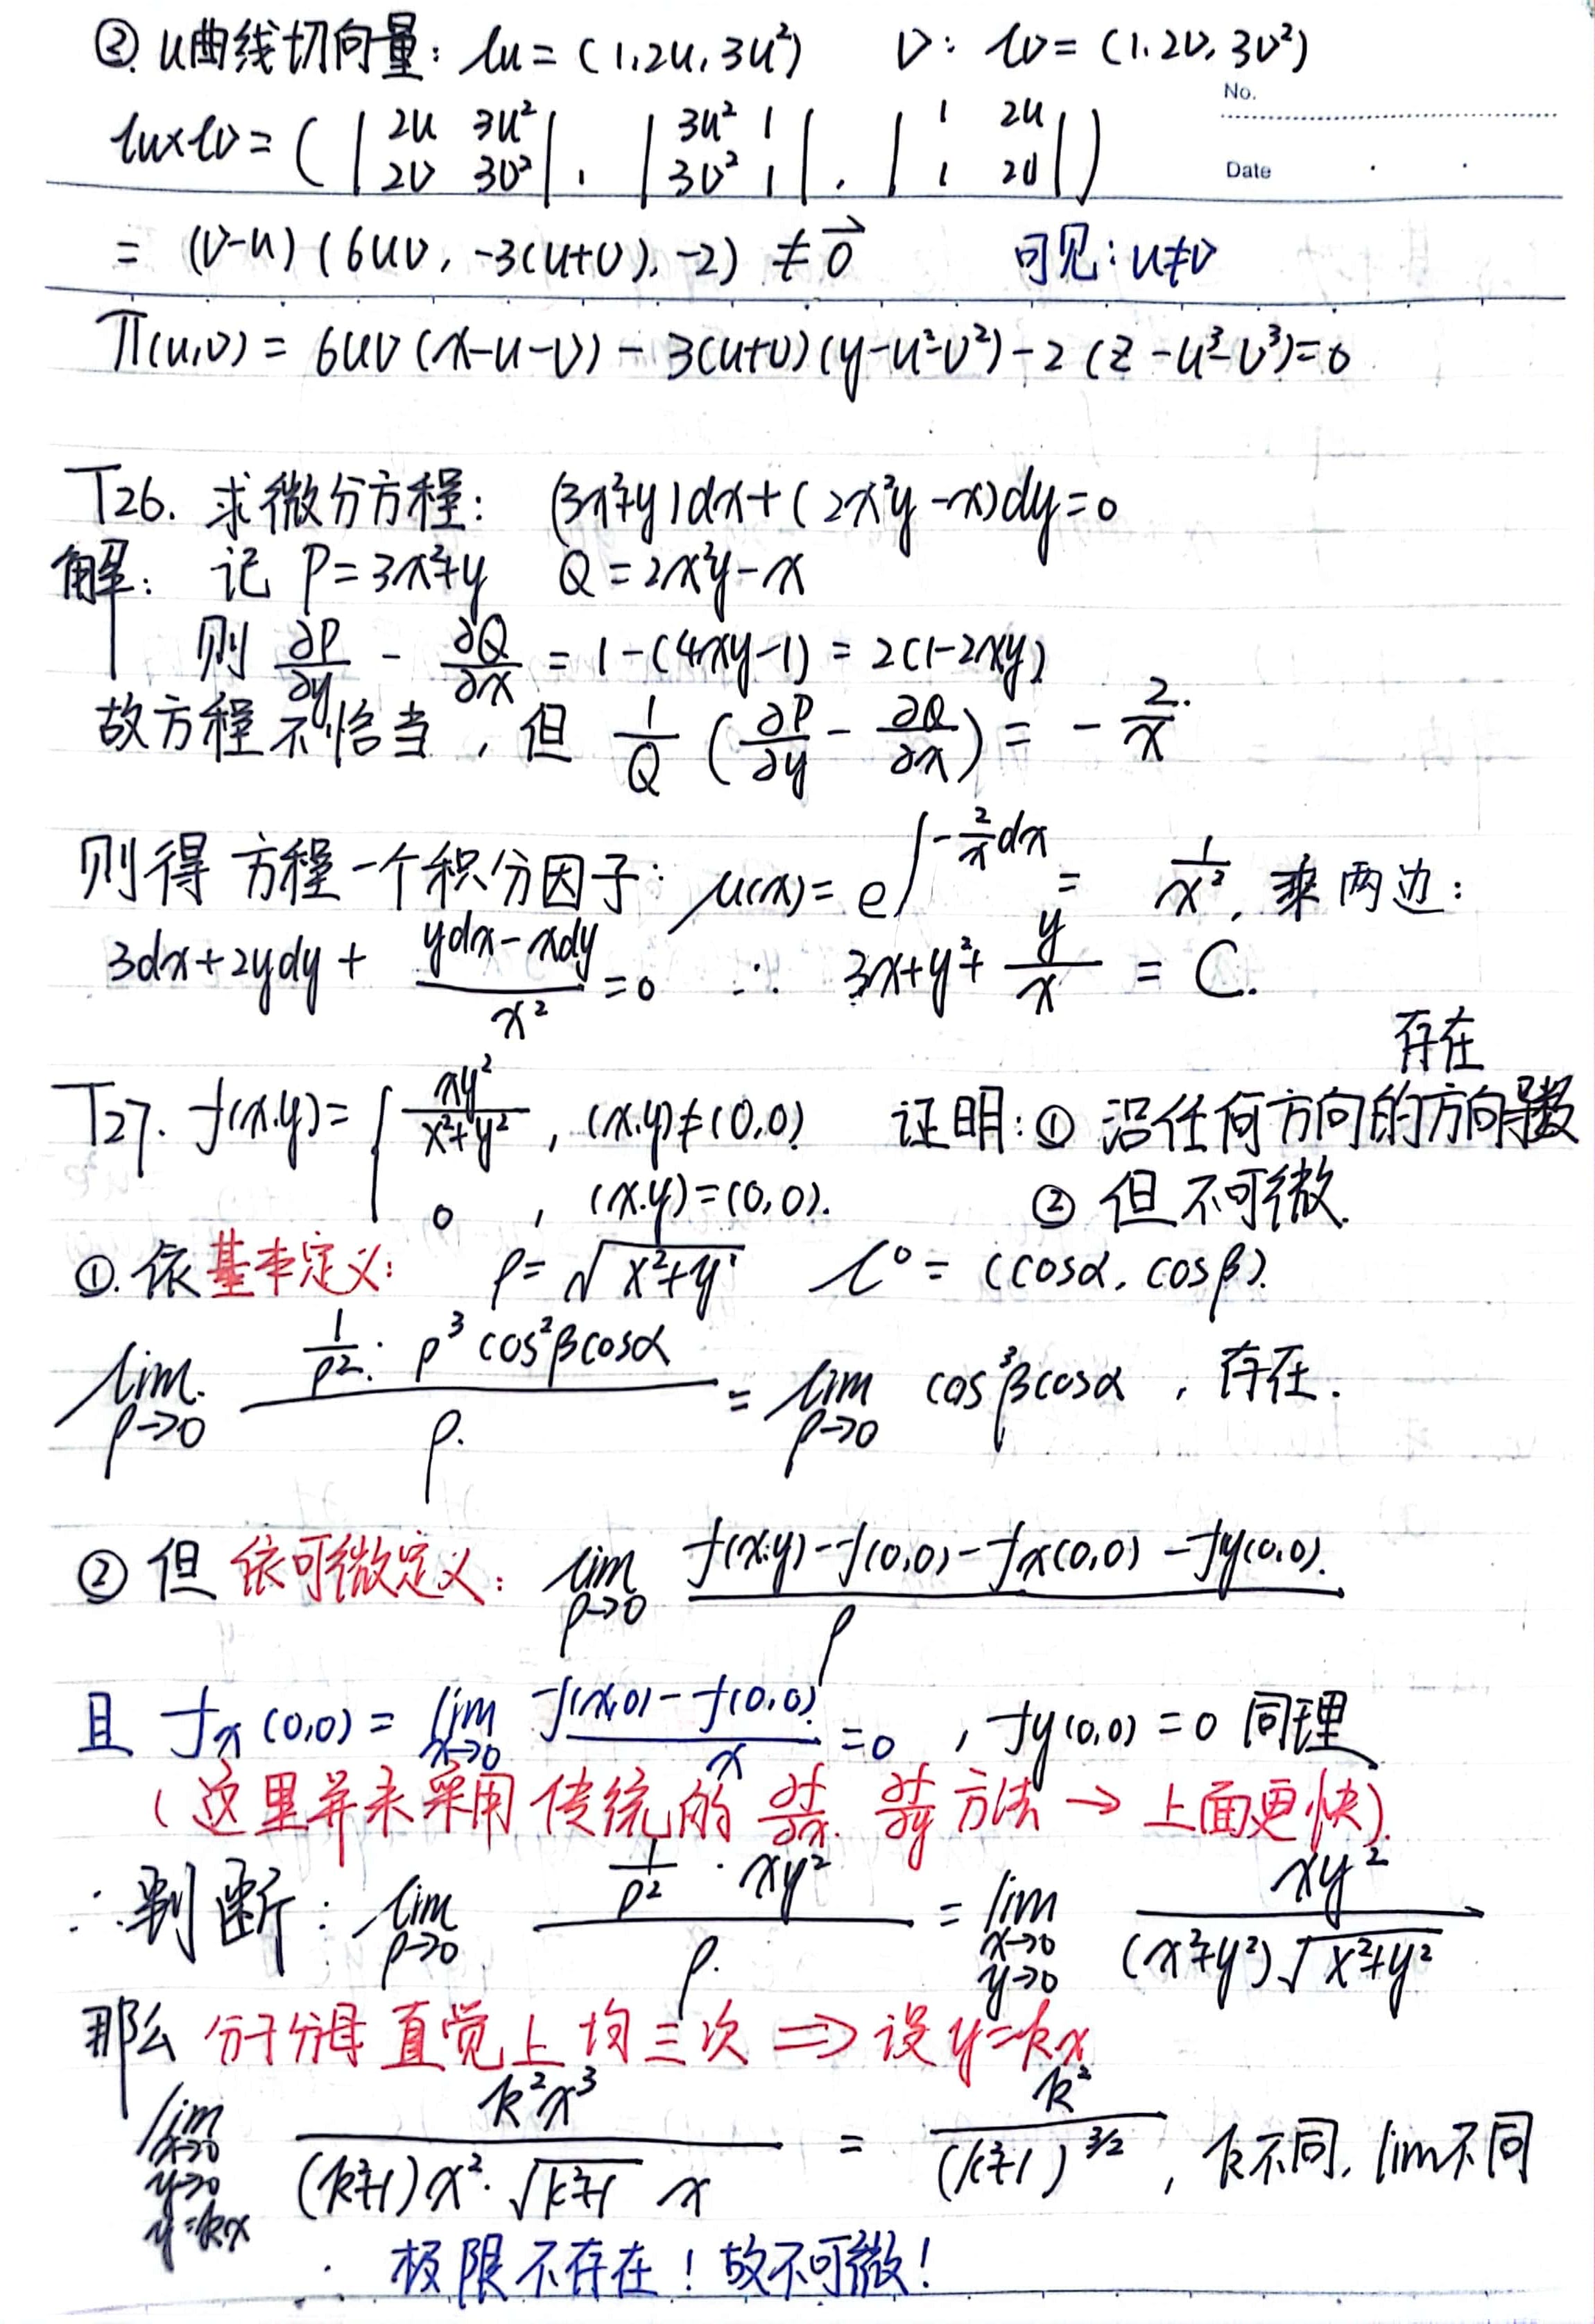 ②. u曲线切向量: lu = (1,2u,3u²)  v: lv = (1.2v,3v²)
No.
lu×lv = ( | 2u 3u² ; 2v 3v² | , | 3u² 1 ; 3v² 1 | , | 1 2u ; 1 2v | )
Date
= (v-u) (6uv, -3(u+v), -2) ≠ 0⃗  可见: u≠v
π(u,v) = 6uv(x-u-v) - 3(u+v)(y-u²-v²) - 2(z-u³-v³)=0
T26. 求微分方程: (3x²+y)dx+(2x²y-x)dy=0
解: 记 P=3x²+y  Q=2x²y-x
则 ∂P/∂y - ∂Q/∂x = 1-(4xy-1) = 2(1-2xy)
故方程不恰当, 但 1/Q (∂P/∂y - ∂Q/∂x) = -2/x.
则得方程一个积分因子: μ(x) = e^∫-2/x dx = 1/x², 乘两边:
3dx+2ydy + (ydx-xdy)/x² =0 ∴ 3x+y²+ y/x = C.
存在
T27. f(x,y)= { xy²/(x²+y²), (x,y)≠(0,0)  证明: ① 沿任何方向的方向导数
0 , (x.y)=(0,0).  ② 但不可微.
①. 依基本定义: ρ= √(x²+y²)  l° = (cosα, cosβ).
lim ρ→0 (1/ρ² · ρ³cos²βcosα)/ρ. = lim ρ→0 cos³βcosα , 存在.
② 但依可微定义: lim ρ→0 (f(x,y)-f(0,0)-fx(0,0)-fy(0,0).)/ρ
且 fx(0,0) = lim x→0 (f(x,0)-f(0,0))/x =0 , fy(0,0)=0 同理
(这里并未采用传统的 ∂f/∂x. ∂f/∂y 方法 → 上面更快).
∴判断: lim ρ→0 (1/ρ² · xy²)/ρ. = lim x→0 y→0 xy²/((x²+y²)√(x²+y²))
那么 分子分母直觉上均三次 ⇒ 设y=kx
lim x→0 y→0 y=kx k²x³/((k²+1)x²·√(k²+1) x) = k²/(k²+1)^3/2 , k不同, lim不同
∴ 极限不存在! 故不可微!